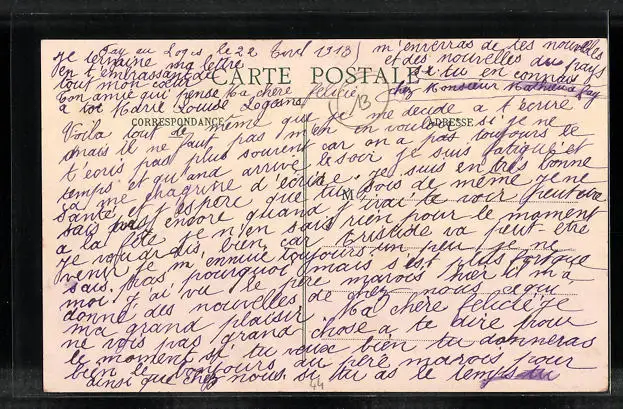 Fay au Loges le 22 Avril 1913
m'enverras de tes nouvelles
et des nouvelles du pays
si tu en connais
chez Monsieur Mathieu a Fay
Je termine ma lettre
en t'embrassant de
tout mon cœur
ton amie qui pense
a toi Marie Louise
CARTE POSTALE
CORRESPONDANCE
ADRESSE
M
13
Ma chère félicie
Voila tout de même que je me décide a t'écrire
mais il ne faut pas m'en vouloir si je ne
t'ecris pas plus souvent car on a pas toujours le
temps et quand arrive le soir je suis fatigué et
ça me chagrine d'écrire. Je suis en très bonne
santé et j'espère que tu sois de même je ne
sais pas encore quand j'irai te voir peut être
a la fête je n'en sais rien pour le moment
Je voudrais bien car Aristide va peut-être
venir je m'ennuie toujours un peu je ne
sais pas pourquoi mais s'est plus fort que
moi j'ai vu le père marois hier il m'a
donné des nouvelles de chez nous ce qui
ma grand plaisir Ma chère félicie je
ne vois pas grand chose a te dire pour
le moment si tu veux bien tu donneras
bien le bonjours au père marois pour
ainsi que chez nous si tu as le temps tu
44